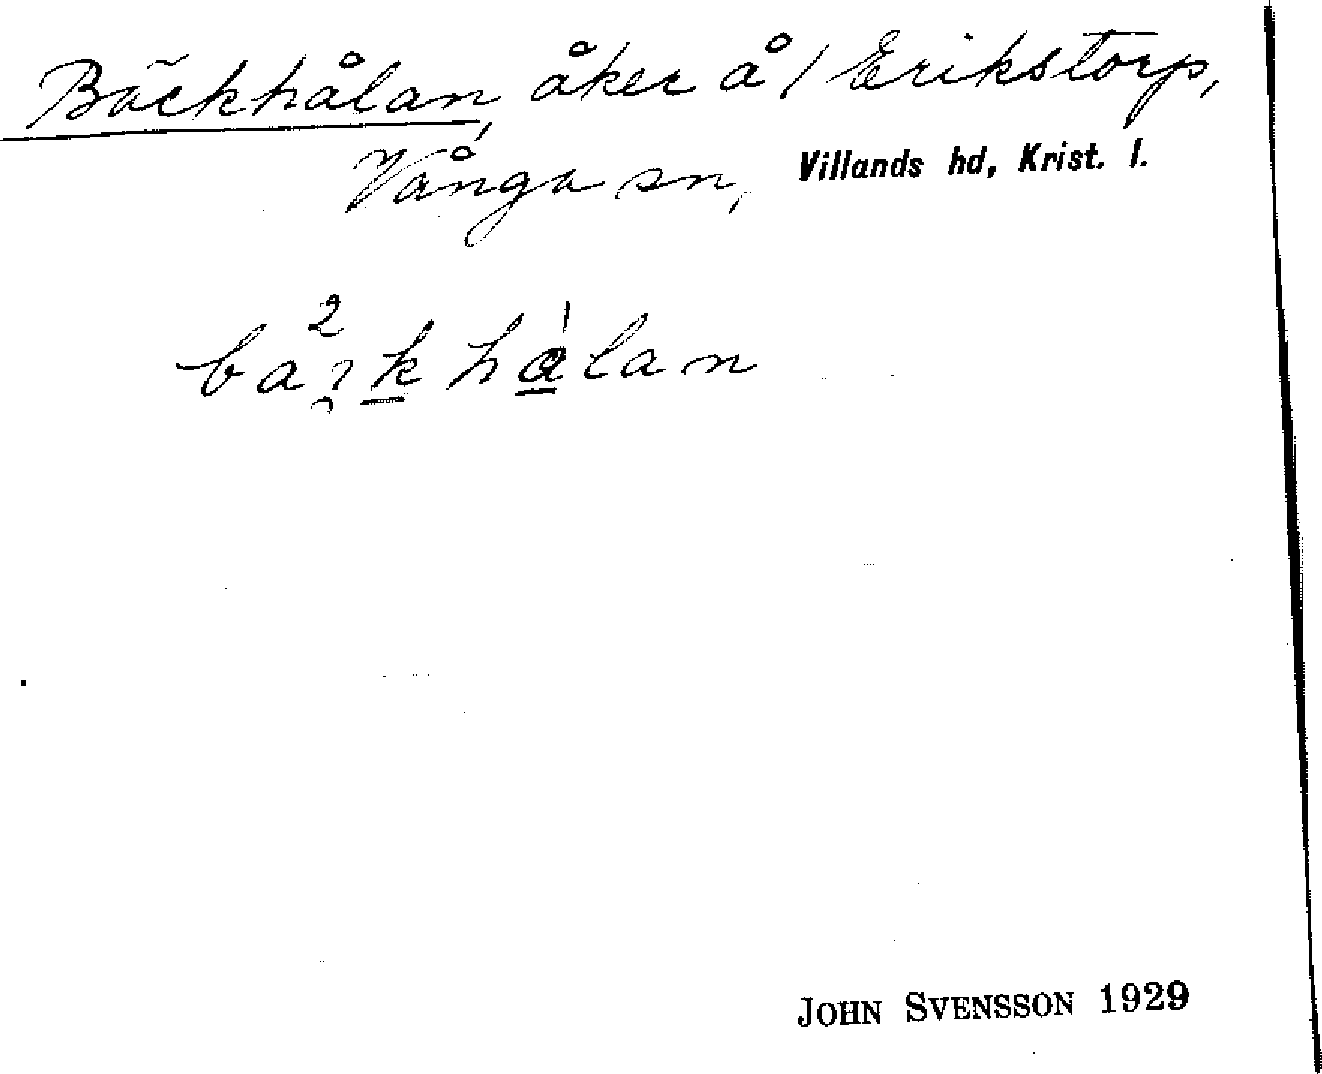 Bäckhålan, åker å 1 Erikstorp,
Vånga sn, Villands hd, Krist. l.
JOHN SVENSSON 1929